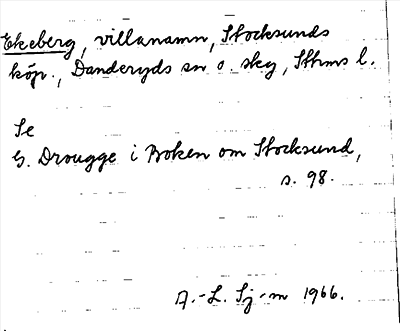 Ekeberg, villanamn, Stocksunds
köp., Danderyds sn o. skg, Sthms l.
Se
G. Drougge i Boken om Stocksund,
s. 98.
A.-L. Sj-m 1966.